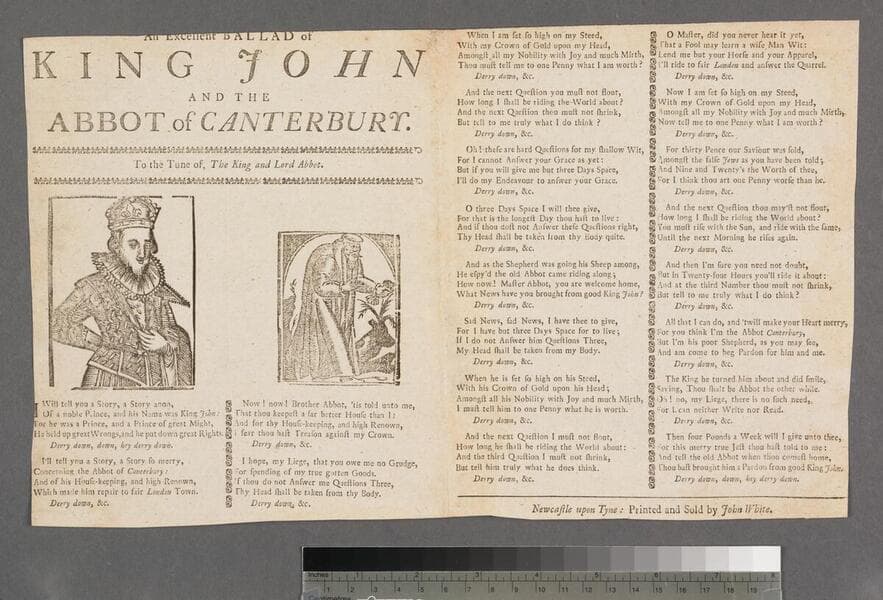 An Excellent BALLAD of
KING JOHN
AND THE
ABBOT of CANTERBURY.
To the Tune of, The King and Lord Abbot.
I Will tell you a Story, a Story anon,
Of a noble Prince, and his Name was King John:
For he was a Prince, and a Prince of great Might,
He held up great Wrongs, and he put down great Rights.
Derry down, down, hey derry down.
I'll tell you a Story, a Story so merry,
Concerning the Abbot of Canterbury:
And of his House-keeping, and high Renown,
Which made him repair to fair London Town.
Derry down, &c.
Now! now! Brother Abbot, 'tis told unto me,
That thou keepest a far better House than I:
And for thy House-keeping, and high Renown,
I fear thou hast Treason against my Crown.
Derry down, &c.
I hope, my Liege, that you owe me no Grudge,
For spending of my true gotten Goods.
If thou do not Answer me Questions Three,
Thy Head shall be taken from thy Body.
Derry down, &c.
When I am set so high on my Steed,
With my Crown of Gold upon my Head,
Amongst all my Nobility with Joy and much Mirth,
Thou must tell me to one Penny what I am worth?
Derry down, &c.
And the next Question you must not flout,
How long I shall be riding the World about?
And the next Question thou must not shrink,
But tell to me truly what I do think?
Derry down, &c.
Oh! these are hard Questions for my shallow Wit,
For I cannot Answer your Grace as yet:
But if you will give me but three Days Space,
I'll do my Endeavour to answer your Grace.
Derry down, &c.
O three Days Space I will thee give,
For that is the longest Day thou hast to live:
And if thou dost not Answer these Questions right,
Thy Head shall be taken from thy Body quite.
Derry down, &c.
And as the Shepherd was going his Sheep among,
He espy'd the old Abbot came riding along;
How now! Master Abbot, you are welcome home,
What News have you brought from good King John?
Derry down, &c.
Sad News, sad News, I have thee to give,
For I have but three Days Space for to live;
If I do not Answer him Questions Three,
My Head shall be taken from my Body.
Derry down, &c.
When he is set so high on his Steed,
With his Crown of Gold upon his Head;
Amongst all his Nobility with Joy and much Mirth,
I must tell him to one Penny what he is worth.
Derry down, &c.
And the next Question I must not flout,
How long he shall be riding the World about:
And the third Question I must not shrink,
But tell him truly what he does think.
Derry down, &c.
O Master, did you never hear it yet,
That a Fool may learn a wise Man Wit:
Lend me but your Horse and your Apparel,
I'll ride to fair London and answer the Quarrel.
Derry down, &c.
Now I am set so high on my Steed,
With my Crown of Gold upon my Head,
Amongst all my Nobility with Joy and much Mirth,
Now tell me to one Penny what I am worth?
Derry down, &c.
For thirty Pence our Saviour was sold,
Amongst the false Jews as you have been told;
And Nine and Twenty's the Worth of thee,
For I think thou art one Penny worse than he.
Derry down, &c.
And the next Question thou may'st not flout,
How long I shall be riding the World about?
You must rise with the Sun, and ride with the same,
Until the next Morning he rises again.
Derry down, &c.
And then I'm sure you need not doubt,
But in Twenty-four Hours you'll ride it about:
And at the third Number thou must not shrink,
But tell to me truly what I do think?
Derry down, &c.
All that I can do, and 'twill make your Heart merry,
For you think I'm the Abbot Canterbury,
But I'm his poor Shepherd, as you may see,
And am come to beg Pardon for him and me.
Derry down, &c.
The King he turned him about and did smile,
Saying, Thou shalt be Abbot the other while.
Oh! no, my Liege, there is no such need,
For I can neither Write nor Read.
Derry down, &c.
Then four Pounds a Week will I give unto thee,
For this merry true Jest thou hast told to me:
And tell the old Abbot when thou comest home,
Thou hast brought him a Pardon from good King John.
Derry down, down, hey derry down.
Newcastle upon Tyne: Printed and Sold by John White.
Inches 1 2 3 4 5 6 7 8
Centimetres 1 2 3 4 5 6 7 8 9 10 11 12 13 14 15 16 17 18 19